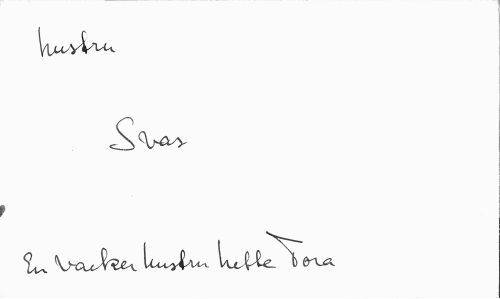 hustru
Svar
En vacker hustru hette Tora